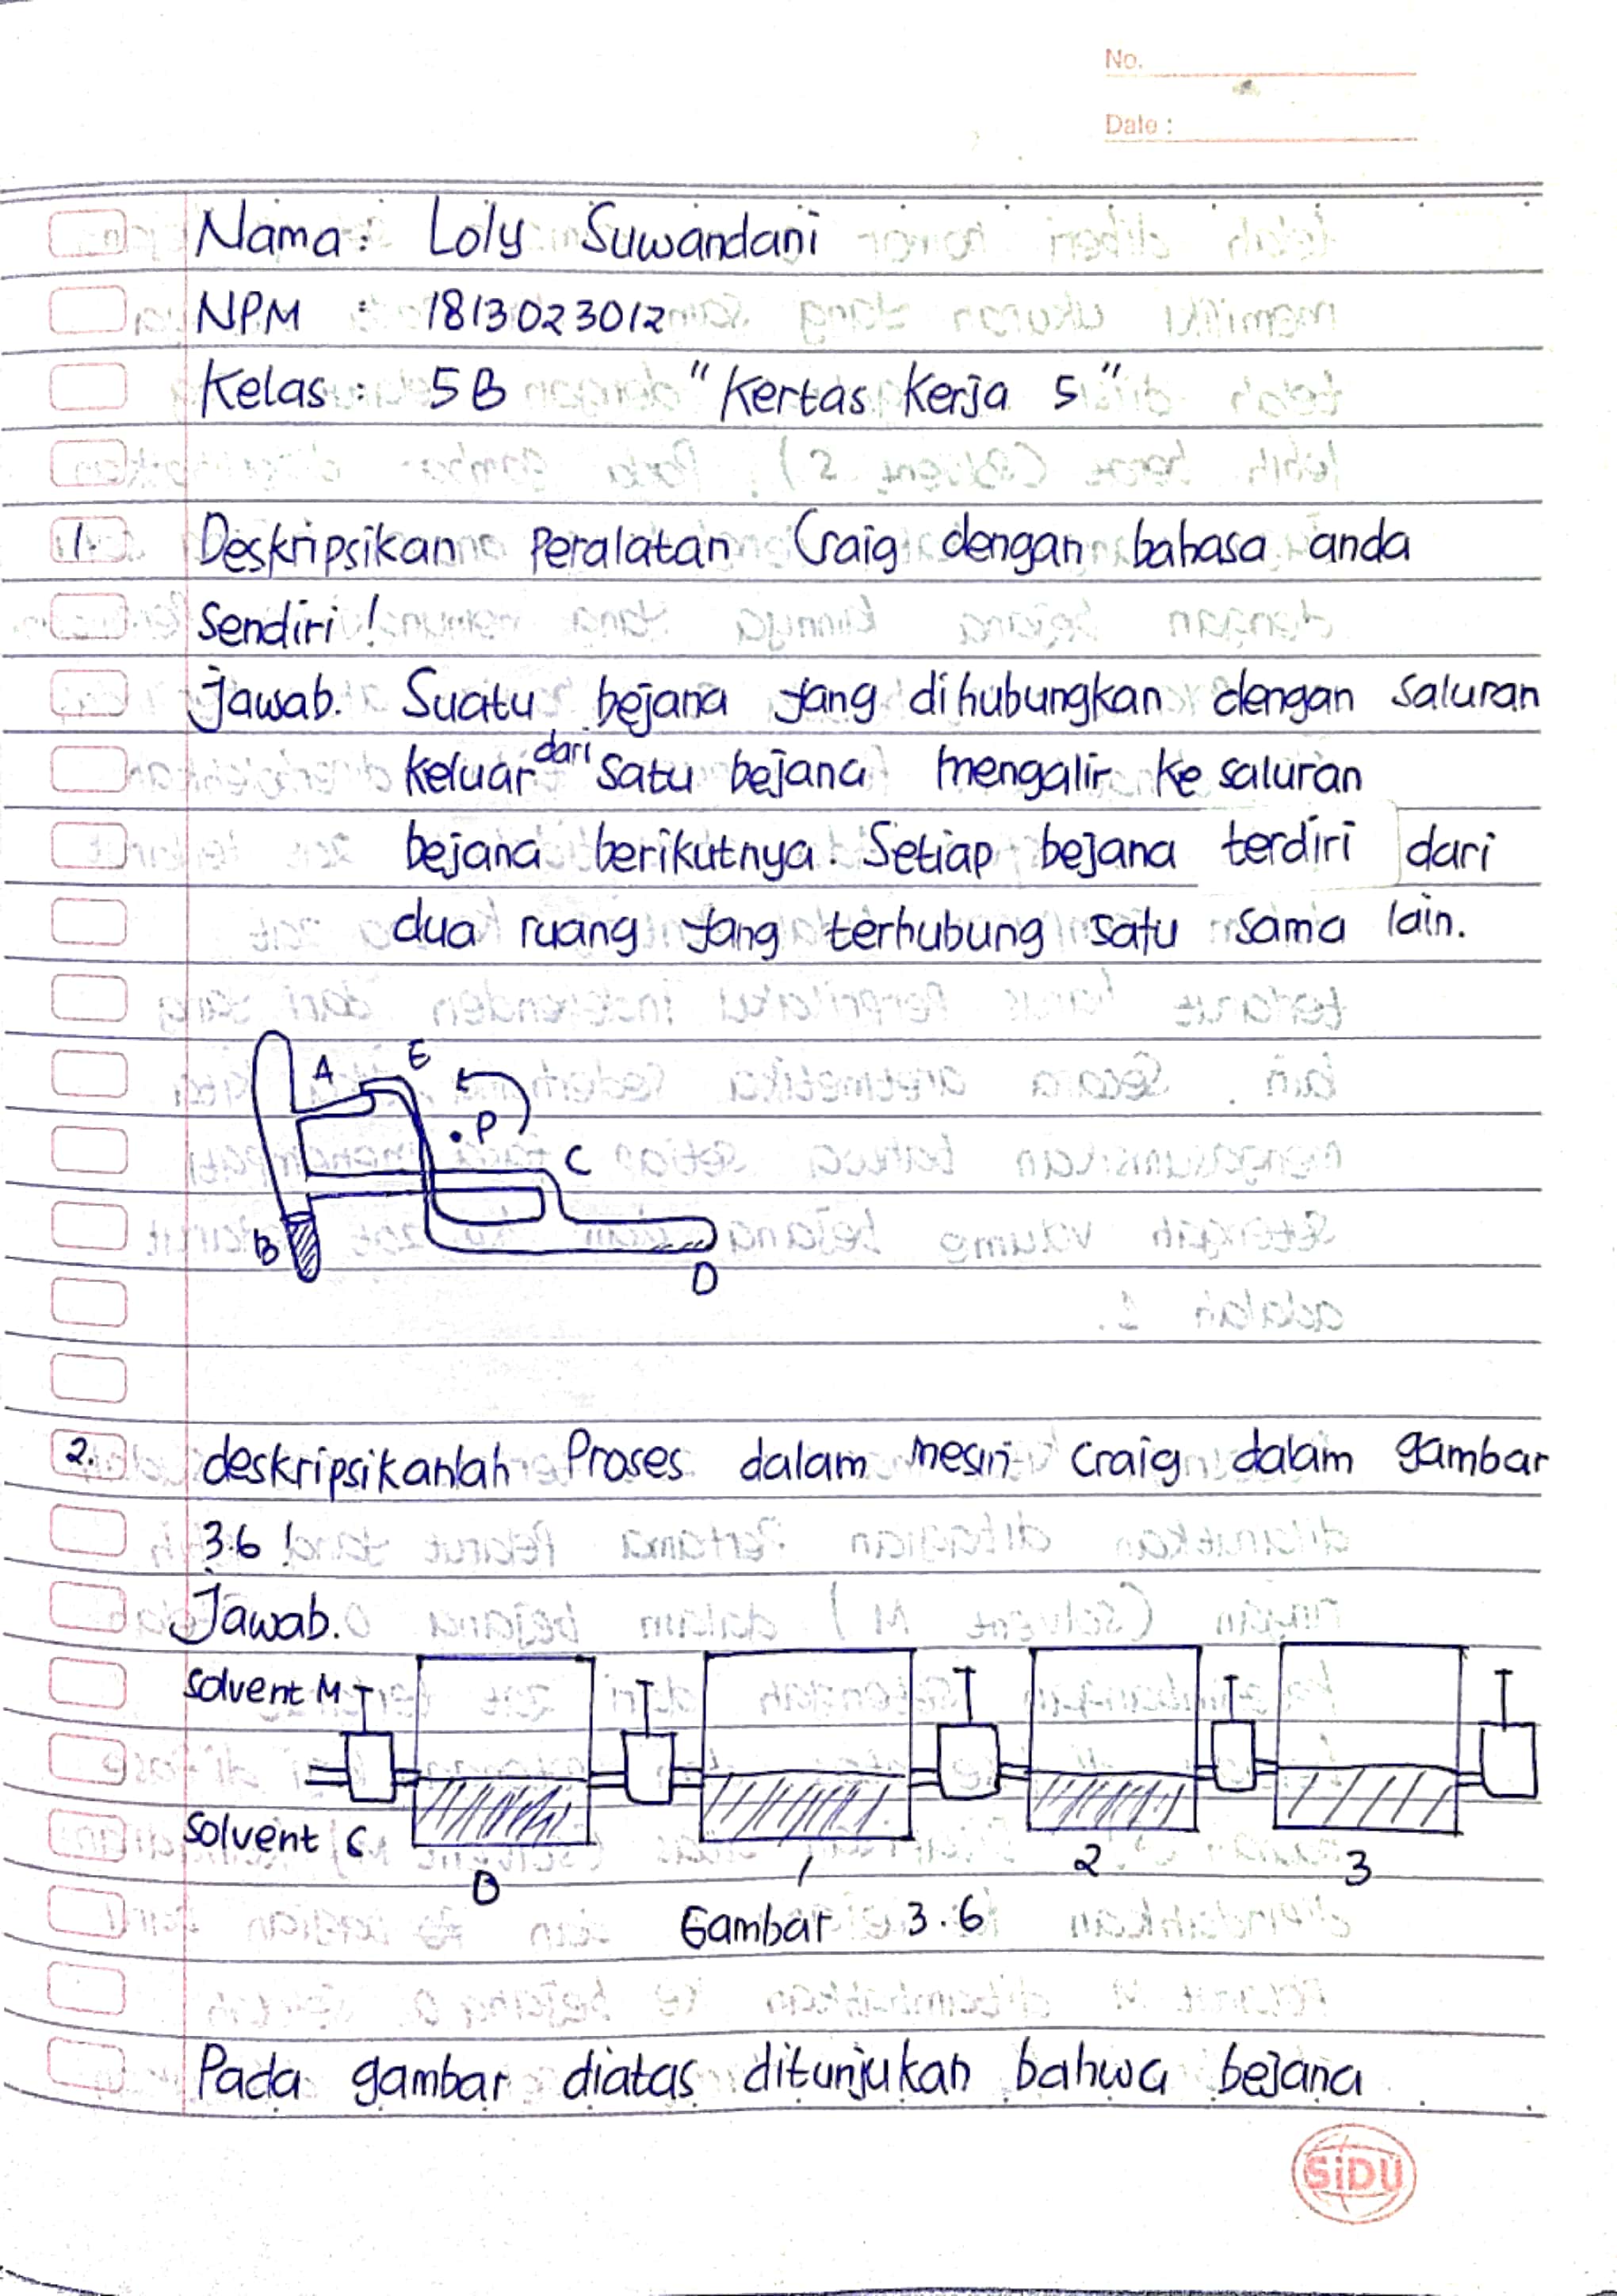 No.
Date :
Nama : Loly Suwandani
NPM : 1813023012
Kelas : 5B "Kertas Kerja 5"
1. Deskripsikan Peralatan Craig dengan bahasa anda
Sendiri !
Jawab. Suatu bejana yang dihubungkan dengan saluran
keluar dari satu bejana mengalir ke saluran
bejana berikutnya. Setiap bejana terdiri dari
dua ruang yang terhubung satu sama lain.
A E
P
C
B
D
2. deskripsikanlah Proses dalam mesin Craig dalam gambar
3.6 !
Jawab.
Solvent M
Solvent S
0 1 2 3
Gambar 3.6
Pada gambar diatas ditunjukan bahwa bejana
SiDU